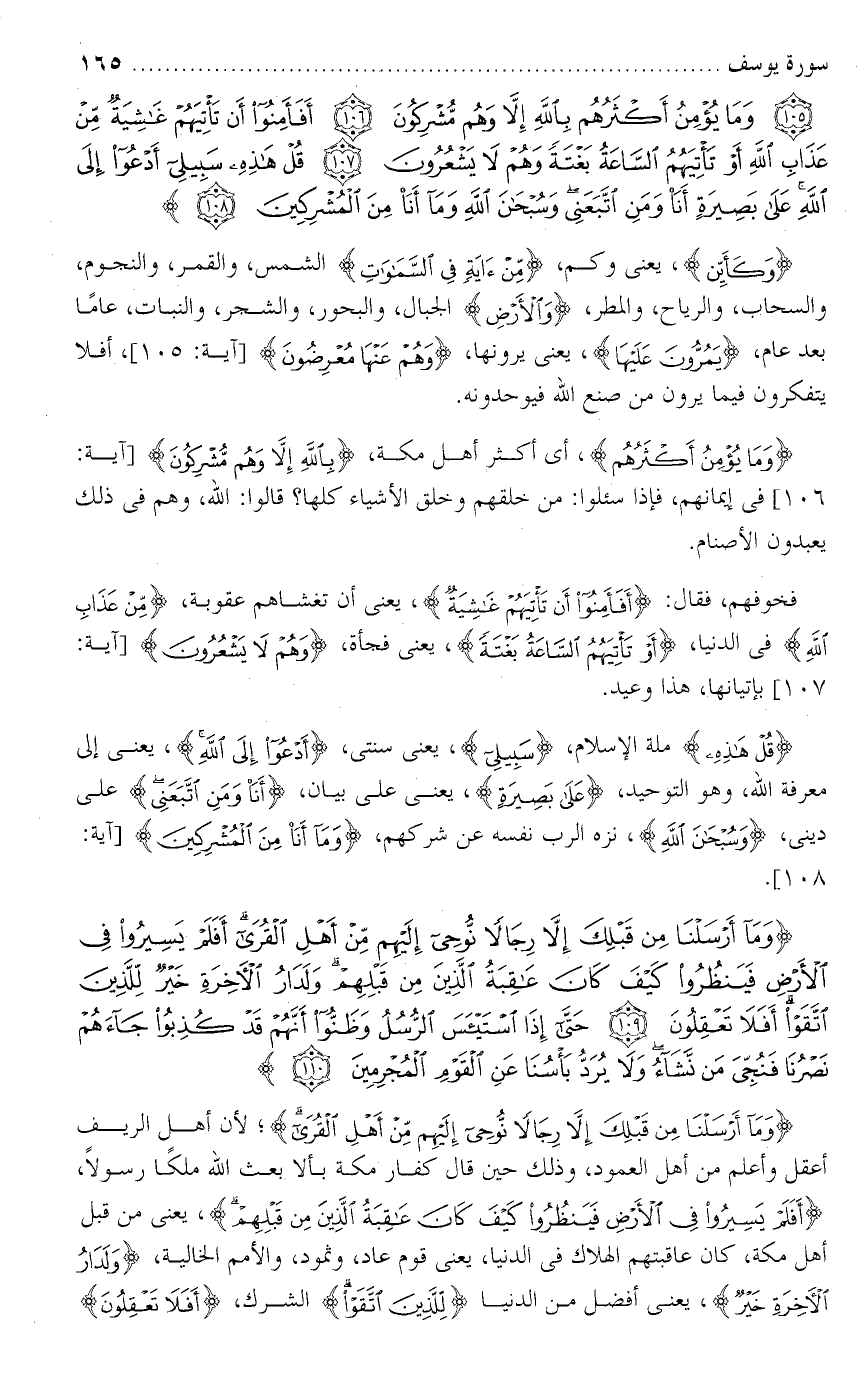 سورة يوسف ........................................................................ ١٦٥
(١٠٥) وَمَا يُؤْمِنُ أَكْثَرُهُم بِٱللَّهِ إِلَّا وَهُم مُّشْرِكُونَ (١٠٦) أَفَأَمِنُوٓا۟ أَن تَأْتِيَهُمْ غَٰشِيَةٌ مِّنْ
عَذَابِ ٱللَّهِ أَوْ تَأْتِيَهُمُ ٱلسَّاعَةُ بَغْتَةً وَهُمْ لَا يَشْعُرُونَ (١٠٧) قُلْ هَٰذِهِۦ سَبِيلِىٓ أَدْعُوٓا۟ إِلَى
ٱللَّهِ ۚ عَلَىٰ بَصِيرَةٍ أَنَا۠ وَمَنِ ٱتَّبَعَنِى ۖ وَسُبْحَٰنَ ٱللَّهِ وَمَآ أَنَا۠ مِنَ ٱلْمُشْرِكِينَ (١٠٨) ﴾
﴿وَكَأَيِّن﴾، يعنى وكم، ﴿مِّنْ ءَايَةٍ فِى ٱلسَّمَٰوَٰتِ﴾ الشمس، والقمر، والنجوم،
والسحاب، والرياح، والمطر، ﴿وَٱلْأَرْضِ﴾ الجبال، والبحور، والشجر، والنبات، عامًا
بعد عام، ﴿يَمُرُّونَ عَلَيْهَا﴾، يعنى يرونها، ﴿وَهُمْ عَنْهَا مُعْرِضُونَ﴾ [آية: ١٠٥]، أفلا
يتفكرون فيما يرون من صنع الله فيوحدونه.
﴿وَمَا يُؤْمِنُ أَكْثَرُهُم﴾، أى أكثر أهل مكة، ﴿بِٱللَّهِ إِلَّا وَهُم مُّشْرِكُونَ﴾ [آية:
١٠٦] فى إيمانهم، فإذا سئلوا: من خلقهم وخلق الأشياء كلها؟ قالوا: الله، وهم فى ذلك
يعبدون الأصنام.
فخوفهم، فقال: ﴿أَفَأَمِنُوٓا۟ أَن تَأْتِيَهُمْ غَٰشِيَةٌ﴾، يعنى أن تغشاهم عقوبة، ﴿مِّنْ عَذَابِ
ٱللَّهِ﴾ فى الدنيا، ﴿أَوْ تَأْتِيَهُمُ ٱلسَّاعَةُ بَغْتَةً﴾، يعنى فجأة، ﴿وَهُمْ لَا يَشْعُرُونَ﴾ [آية:
١٠٧] بإتيانها، هذا وعيد.
﴿قُلْ هَٰذِهِۦ﴾ ملة الإسلام، ﴿سَبِيلِىٓ﴾، يعنى سنتى، ﴿أَدْعُوٓا۟ إِلَى ٱللَّهِ ۚ﴾، يعنى إلى
معرفة الله، وهو التوحيد، ﴿عَلَىٰ بَصِيرَةٍ﴾، يعنى على بيان، ﴿أَنَا۠ وَمَنِ ٱتَّبَعَنِى ۖ﴾ على
دينى، ﴿وَسُبْحَٰنَ ٱللَّهِ﴾، نزه الرب نفسه عن شركهم، ﴿وَمَآ أَنَا۠ مِنَ ٱلْمُشْرِكِينَ﴾ [آية:
١٠٨].
﴿وَمَآ أَرْسَلْنَا مِن قَبْلِكَ إِلَّا رِجَالًا نُّوحِىٓ إِلَيْهِم مِّنْ أَهْلِ ٱلْقُرَىٰٓ ۗ أَفَلَمْ يَسِيرُوا۟ فِى
ٱلْأَرْضِ فَيَنظُرُوا۟ كَيْفَ كَانَ عَٰقِبَةُ ٱلَّذِينَ مِن قَبْلِهِمْ ۗ وَلَدَارُ ٱلْءَاخِرَةِ خَيْرٌ لِّلَّذِينَ
ٱتَّقَوْا۟ ۗ أَفَلَا تَعْقِلُونَ (١٠٩) حَتَّىٰٓ إِذَا ٱسْتَيْـَٔسَ ٱلرُّسُلُ وَظَنُّوٓا۟ أَنَّهُمْ قَدْ كُذِبُوا۟ جَآءَهُمْ
نَصْرُنَا فَنُجِّىَ مَن نَّشَآءُ ۖ وَلَا يُرَدُّ بَأْسُنَا عَنِ ٱلْقَوْمِ ٱلْمُجْرِمِينَ (١١٠) ﴾
﴿وَمَآ أَرْسَلْنَا مِن قَبْلِكَ إِلَّا رِجَالًا نُّوحِىٓ إِلَيْهِم مِّنْ أَهْلِ ٱلْقُرَىٰٓ ۗ﴾؛ لأن أهل الريف
أعقل وأعلم من أهل العمود، وذلك حين قال كفار مكة بألا بعث الله ملكًا رسولاً،
﴿أَفَلَمْ يَسِيرُوا۟ فِى ٱلْأَرْضِ فَيَنظُرُوا۟ كَيْفَ كَانَ عَٰقِبَةُ ٱلَّذِينَ مِن قَبْلِهِمْ ۗ﴾، يعنى من قبل
أهل مكة، كان عاقبتهم الهلاك فى الدنيا، يعنى قوم عاد، وثمود، والأمم الخالية، ﴿وَلَدَارُ
ٱلْءَاخِرَةِ خَيْرٌ﴾، يعنى أفضل من الدنيا ﴿لِّلَّذِينَ ٱتَّقَوْا۟ ۗ﴾ الشرك، ﴿أَفَلَا تَعْقِلُونَ﴾